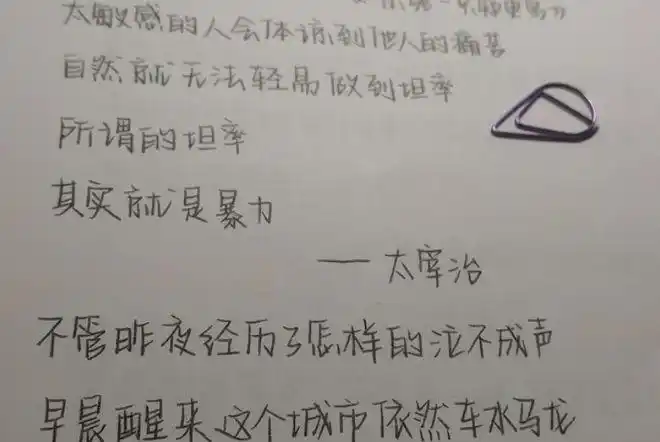 太敏感的人会体谅到他人的痛苦
自然就无法轻易做到坦率
所谓的坦率
其实就是暴力
—— 太宰治
不管昨夜经历了怎样的泣不成声
早晨醒来这个城市依然车水马龙